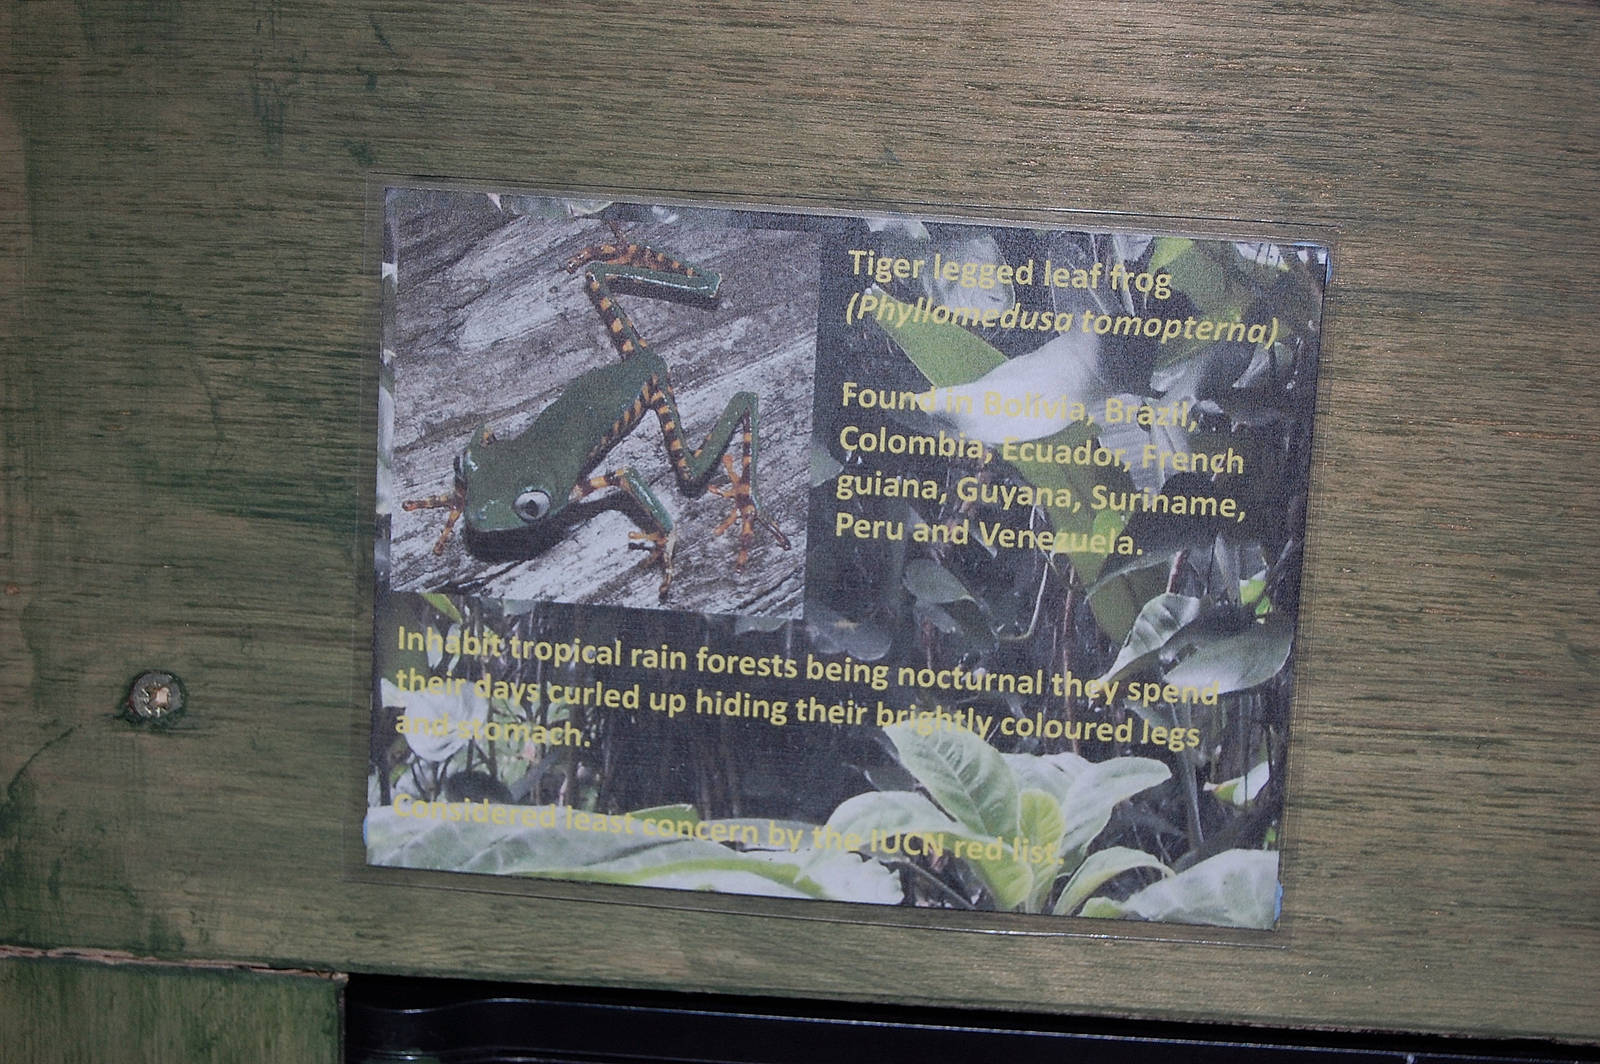 Tiger legged leaf frog
(Phyllomedusa tomopterna)
Found in Bolivia, Brazil,
Colombia, Ecuador, French
guiana, Guyana, Suriname,
Peru and Venezuela.
Inhabit tropical rain forests being nocturnal they spend
their days curled up hiding their brightly coloured legs
and stomach.
Considered least concern by the IUCN red list.